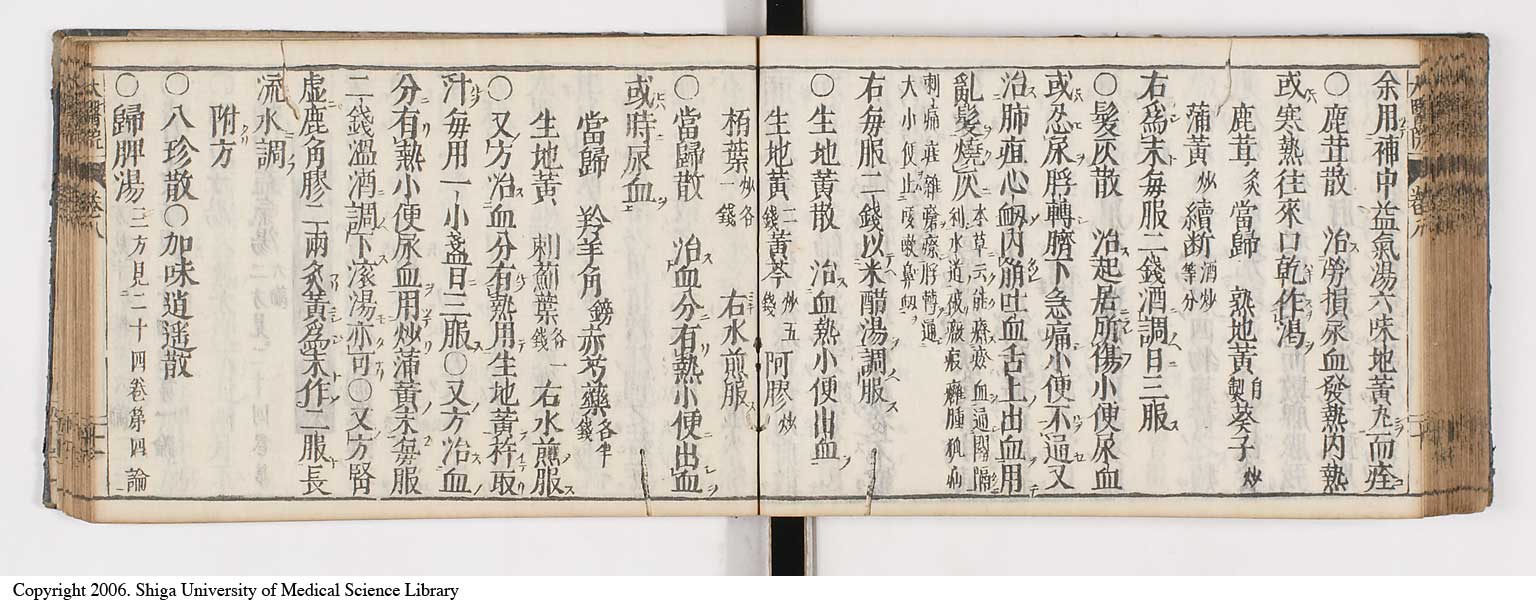 余用補中益氣湯六味地黃丸而痊
○鹿茸散　治勞損尿血發熱內熱
或寒熱往來口乾作渴
鹿茸炙當歸　熟地黃自製葵子炒
蒲黃炒續斷酒炒等分
右爲末每服二錢酒調日三服
○髮灰散　治起居所傷小便尿血
或忍尿脬轉臍下急痛小便不通又
治肺疽心衂內崩吐血舌上出血用
亂髮燒灰本草云能療瘀血通關隔
利水道破癥瘕癰腫狐
刺　雜瘡療脬轉通
大小便止咳嗽鼻衂
右每服二錢以米醋湯調服
○生地黃散　治血熱小便出血
生地黃二錢黃芩炒五錢阿膠炒
栢葉炒各一錢　右水煎服
○當歸散　治血分有熱小便出血
或時尿血
當歸　羚羊角鎊赤芍藥各半錢
生地黃　刺薊葉各一錢右水煎服
○又方治血分有熱用生地黃杵取
汁每用一小盞日三服○又方治血
分有熱小便尿血用炒蒲黃末每服
二錢溫酒調下滾湯亦可○又方腎
虛鹿角膠二兩炙黃爲末作二服長
流水調
附方
○八珍散○加味逍遥散
○歸脾湯三方見二十四卷第四論
Copyright 2006. Shiga University of Medical Science Library